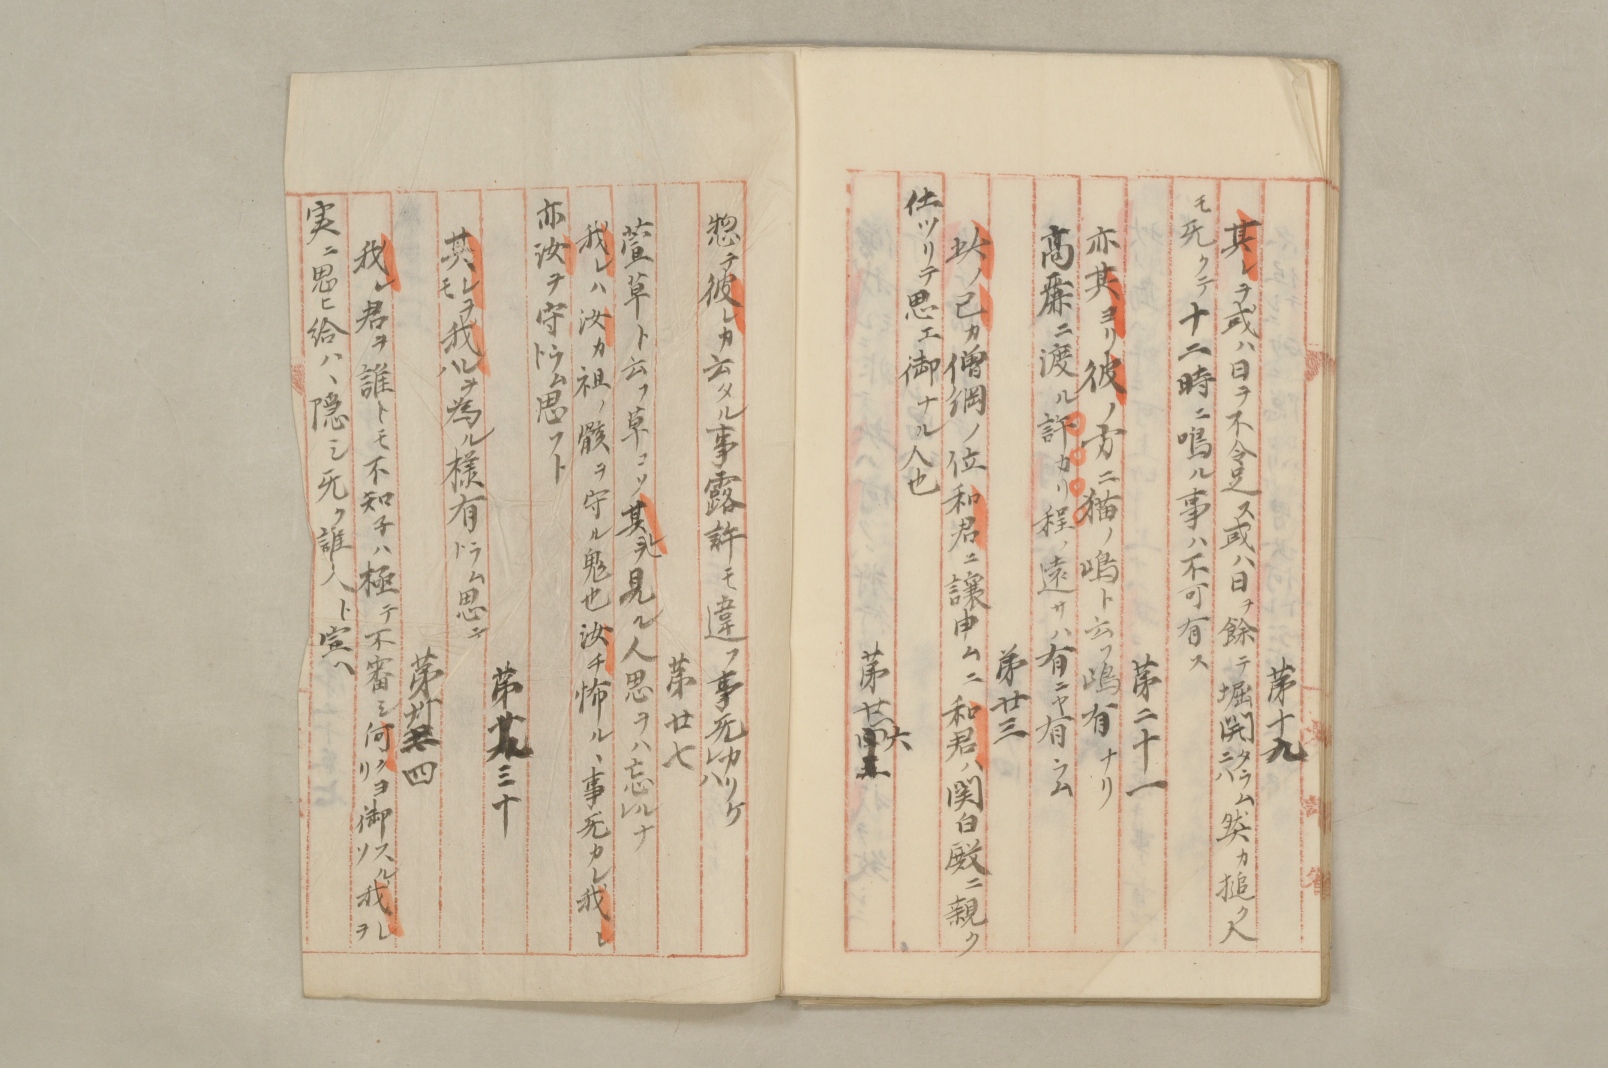 第十九
其レヲ或ハ日ヲ不令足ス或ハ日ヲ餘テ堀開タラムニハ然カ搥ク人
モ无クテ十二時ニ鳴ル事ハ不可有ス
第二十一
亦其ヨリ彼ノ方ニ猫ノ嶋ト云フ嶋有ナリ
高麗ニ渡ル許カリ程ノ遠サハ有ニヤ有ラム
第廿三
此ノ己カ僧綱ノ位和君ニ讓申ムニ和君ハ関白殿ニ親ク
仕ツリテ思エ御ナル人也
第廿六
惣テ彼レカ云タル事露許モ違フ事无カリケレハ
第廿七
萱草ト云フ草コソ其レヲ見ル人思ヲハ忘ルナレ
我レハ汝カ祖ノ骸ヲ守ル鬼也汝チ怖ル、事无カレ我レ
亦汝ヲ守ラムト思フト
第三十
其レモ我レヲハ為ル様有ラムト思テ
第卅四
我レ君ヲ誰トモ不知子ハ極テ不審ミ何クヨリ御スルソ我レヲ
実ニ思ヒ給ハ、隠シ无ク誰人ト宣ヘ